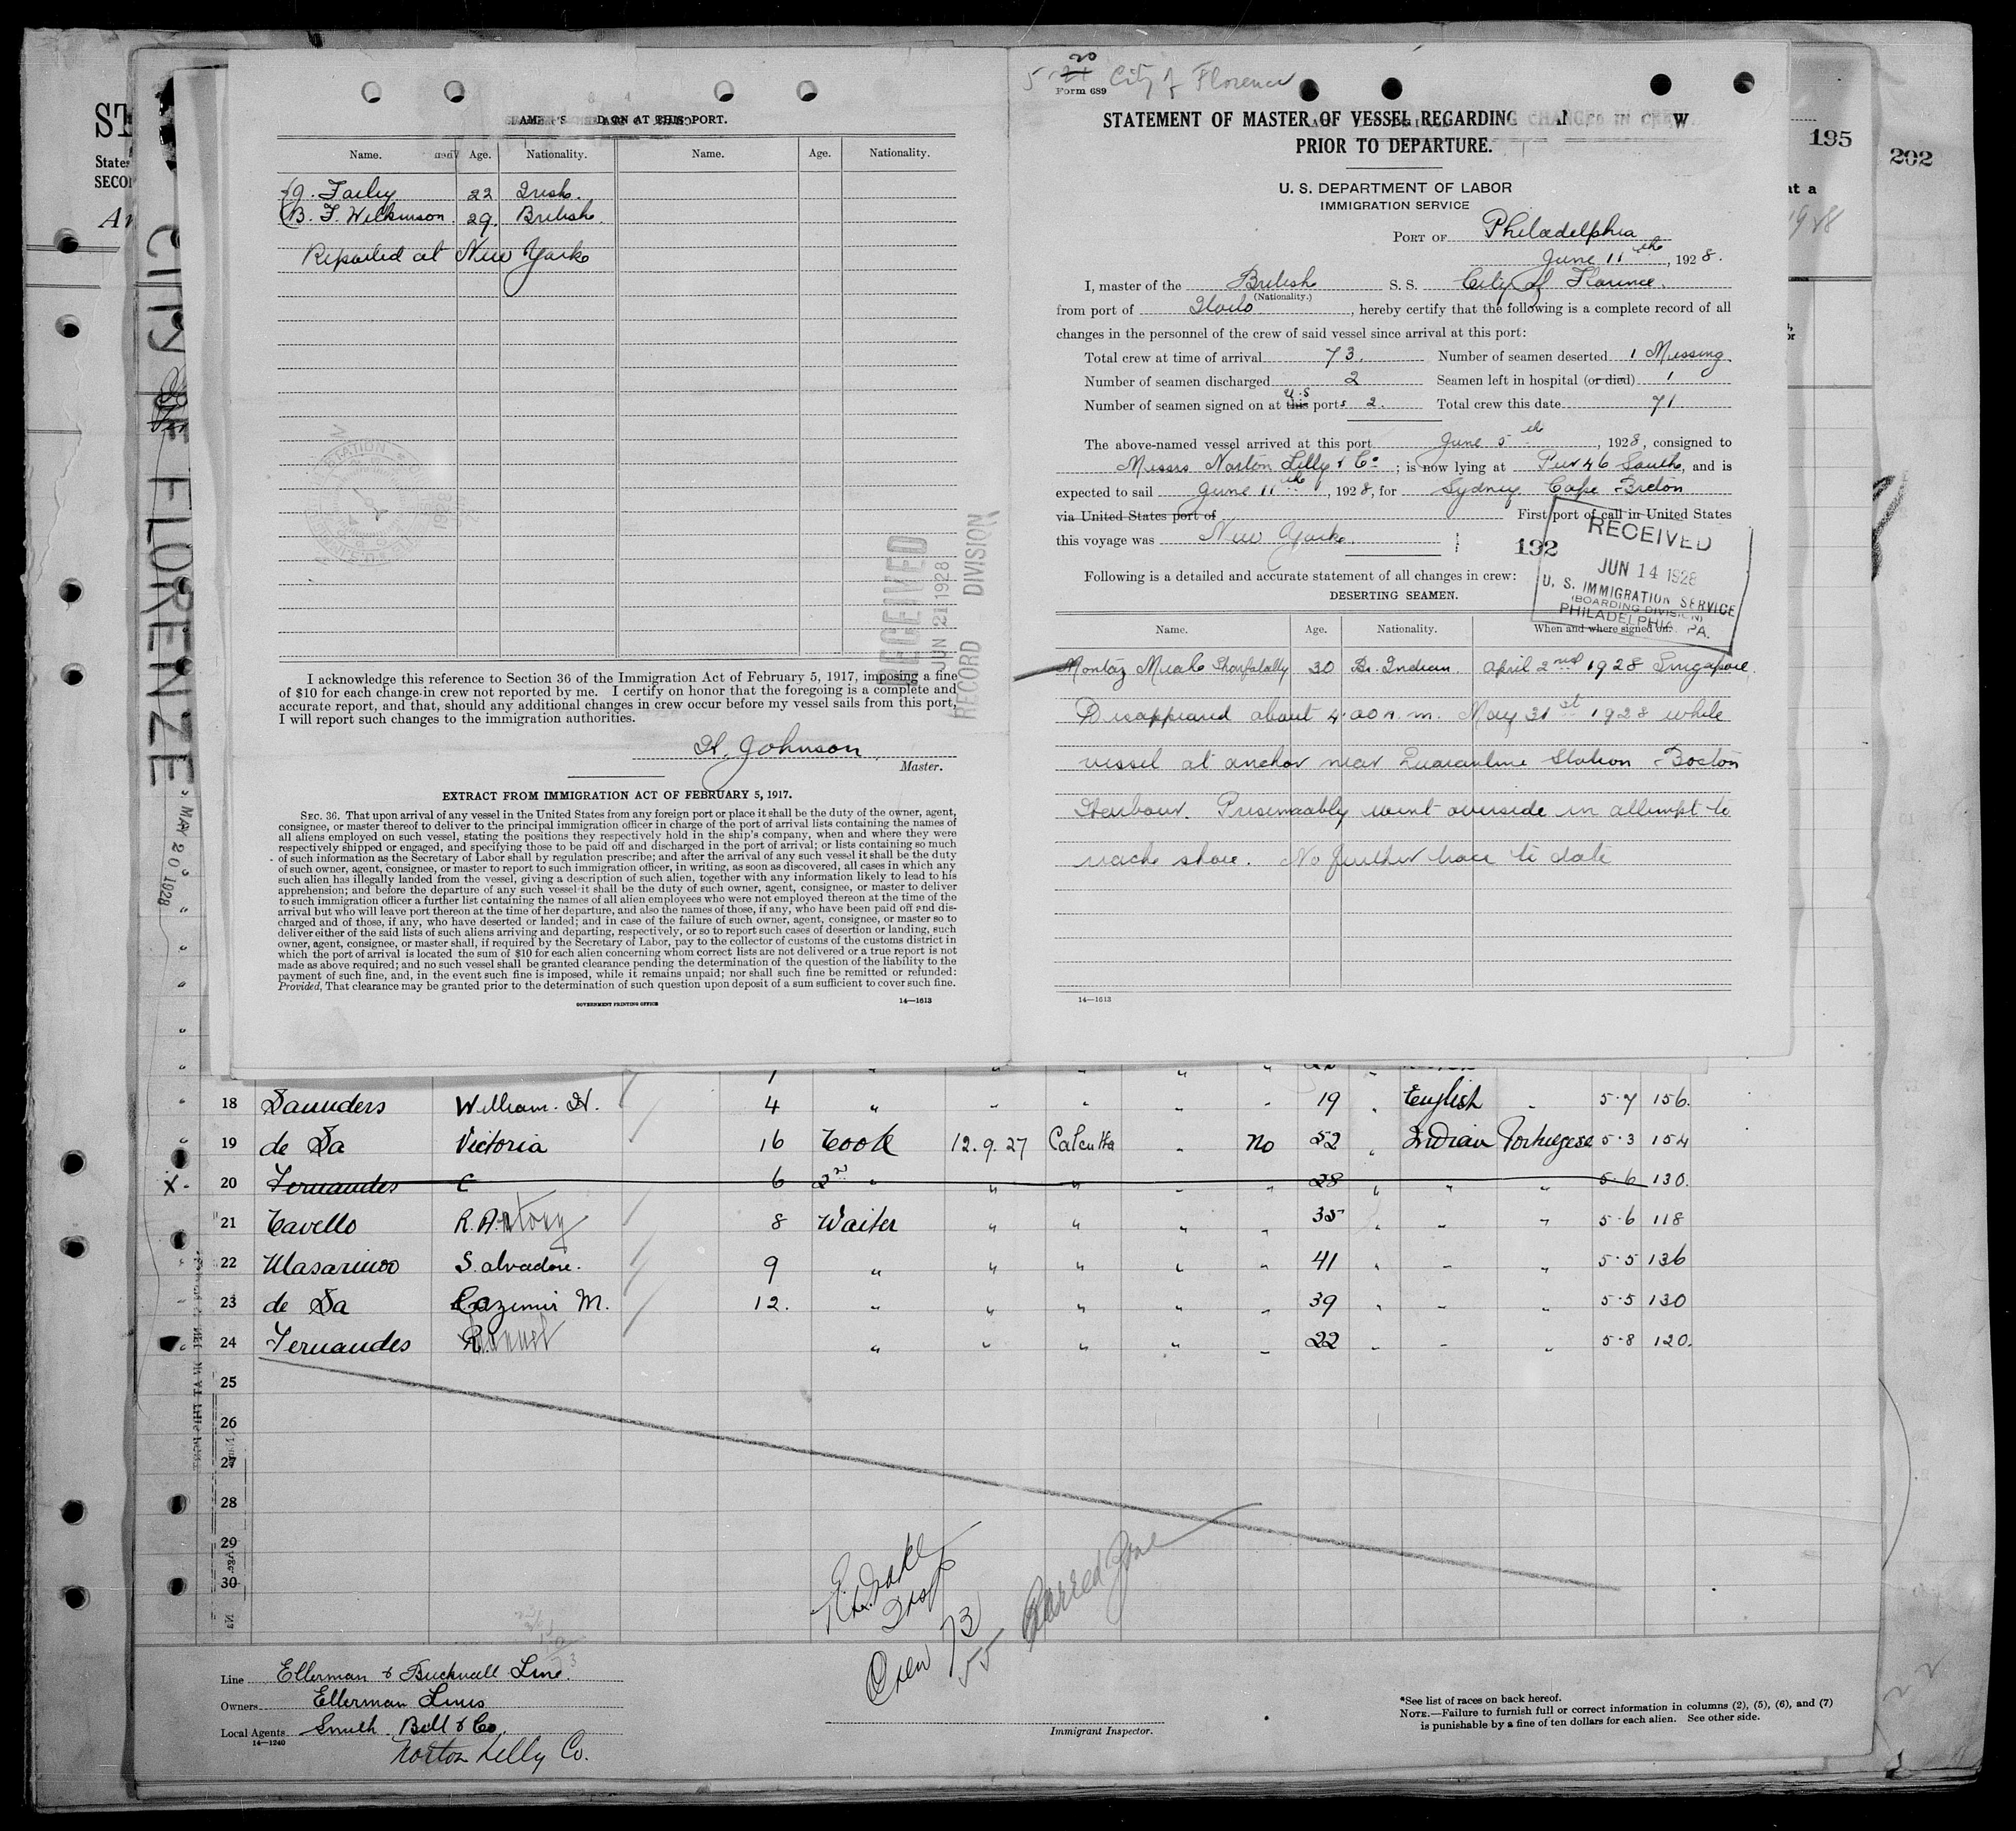 195
202
CITY DE FLORENZE
MAY 20 1928
SIGNED ON AT THIS PORT.
Name. Age. Nationality. Name. Age. Nationality.
J. Farley 22 Irish.
B. F. Wilkinson. 29. British.
Reported at New York
RECEIVED
JUN 21 1928
RECORD DIVISION
I acknowledge this reference to Section 36 of the Immigration Act of February 5, 1917, imposing a fine
of $10 for each change in crew not reported by me. I certify on honor that the foregoing is a complete and
accurate report, and that, should any additional changes in crew occur before my vessel sails from this port,
I will report such changes to the immigration authorities.
H. Johnson
Master.
EXTRACT FROM IMMIGRATION ACT OF FEBRUARY 5, 1917.
SEC. 36. That upon arrival of any vessel in the United States from any foreign port or place it shall be the duty of the owner, agent,
consignee, or master thereof to deliver to the principal immigration officer in charge of the port of arrival lists containing the names of
all aliens employed on such vessel, stating the positions they respectively hold in the ship's company, when and where they were
respectively shipped or engaged, and specifying those to be paid off and discharged in the port of arrival; or lists containing so much
of such information as the Secretary of Labor shall by regulation prescribe; and after the arrival of any such vessel it shall be the duty
of such owner, agent, consignee, or master to report to such immigration officer, in writing, as soon as discovered, all cases in which any
such alien has illegally landed from the vessel, giving a description of such alien, together with any information likely to lead to his
apprehension; and before the departure of any such vessel it shall be the duty of such owner, agent, consignee, or master to deliver
to such immigration officer a further list containing the names of all alien employees who were not employed thereon at the time of the
arrival but who will leave port thereon at the time of her departure, and also the names of those, if any, who have been paid off and dis-
charged and of those, if any, who have deserted or landed; and in case of the failure of such owner, agent, consignee, or master so to
deliver either of the said lists of such aliens arriving and departing, respectively, or so to report such cases of desertion or landing, such
owner, agent, consignee, or master shall, if required by the Secretary of Labor, pay to the collector of customs of the customs district in
which the port of arrival is located the sum of $10 for each alien concerning whom correct lists are not delivered or a true report is not
made as above required; and no such vessel shall be granted clearance pending the determination of the question of the liability to the
payment of such fine, and, in the event such fine is imposed, while it remains unpaid; nor shall such fine be remitted or refunded:
Provided, That clearance may be granted prior to the determination of such question upon deposit of a sum sufficient to cover such fine.
GOVERNMENT PRINTING OFFICE 14—1613
20
5 21 City of Florence
Form 689
STATEMENT OF MASTER OF VESSEL REGARDING CHANGES IN CREW
PRIOR TO DEPARTURE.
U. S. DEPARTMENT OF LABOR
IMMIGRATION SERVICE
PORT OF Philadelphia
June 11th, 1928.
I, master of the British S. S. City of Florence.
(Nationality.)
from port of Iloilo, hereby certify that the following is a complete record of all
changes in the personnel of the crew of said vessel since arrival at this port:
Total crew at time of arrival 73. Number of seamen deserted 1 Missing.
Number of seamen discharged 2 Seamen left in hospital (or died) 1
Number of seamen signed on at this U.S ports 2. Total crew this date 71
The above-named vessel arrived at this port June 5th, 1928, consigned to
Messrs Norton Lilly & Co; is now lying at Pier 46 South, and is
expected to sail June 11th, 1928, for Sydney Cape Breton
via United States port of First port of call in United States
this voyage was New York. 192
RECEIVED
JUN 14 1928
U. S. IMMIGRATION SERVICE
(BOARDING DIVISION)
PHILADELPHIA, PA.
Following is a detailed and accurate statement of all changes in crew:
DESERTING SEAMEN.
Name. Age. Nationality. When and where signed on.
Montaz Meah Sharfatally 30 Br. Indian. April 2nd 1928 Singapore.
Disappeared about 4.00 A.m. May 31st 1928 while
vessel at anchor near Quarantine Station Boston
Harbour. Presumably went overside in attempt to
reach shore. No further trace to date
14—1613
18 Saunders William. H. 4 " " " " " 19 " English " 5.7 156.
19 de Sa Victoria 16 Cook 12.9.27 Calcutta " No 52 " Indian Portugese 5.3 154
X- 20 Fernandes C 6 2nd " " " " " 28 " " " 5.6 130.
21 Cavello R. Antony 8 Waiter " " " " 35 " " " 5.6 118
22 Masarinoo Salvadore. 9 " " " " " 41 " " " 5.5 136
23 de Sa Cazemir M. 12. " " " " " 39 " " " 5.5 130
24 Fernandes R. " " " " " 22 " " " 5.8 120.
25
26
27
28
29
30
Crew 73
55 Barred Zone
Line Ellerman & Bucknall Line.
Owners Ellerman Lines
Local Agents Smith Bell & Co.
14—1240
Norton Lilly Co.
Immigrant Inspector.
*See list of races on back hereof.
NOTE.—Failure to furnish full or correct information in columns (2), (5), (6), and (7)
is punishable by a fine of ten dollars for each alien. See other side.